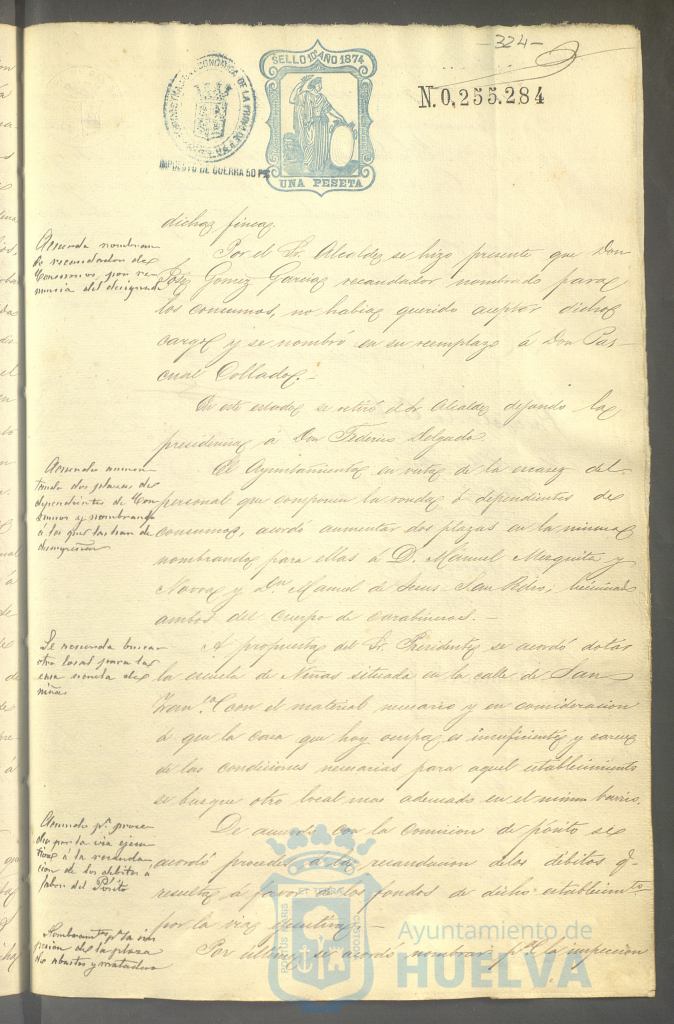 -324-
SELLO 10º AÑO 1874
UNA PESETA
IMPUESTO DE GUERRA 50 PS
N.0,255.284
dichas fincas
Acuerda nombram
de recaudador de
Consumos, por re-
nuncia del designado
Por el Sr. Alcalde se hizo presente que Don
José Gomez Garcia recaudador nombrado para
los consumos, no habia querido aceptar dicho
cargo y se nombró en su reemplazo á Don Pas-
cual Collado.-
En este estado se retiró el Sr. Alcalde dejando la
presidencia á Don Federico Delgado
Acuerda aumen-
tando dos plazas de
dependientes de Con
sumos y nombrando
á los que las han de
desempeñar
El Ayuntamiento en vista de la escasez del
personal que componen la ronda ó dependientes de
consumos, acordó aumentar dos plazas en la misma
nombrando para ellas á D. Manuel Mezquita y
Novoa y Dn Manuel de Jesus San Pedro, licenciados
ambos del cuerpo de carabineros.-
Se acuerda buscar
otro local para la
escuela de
niñas
A propuesta del Sr. Presidente se acordó dotar
la escuela de Niñas situada en la calle de San
Franco con el material necesario y en consideracion
á que la casa que hoy ocupa es insuficiente y carece
de las condiciones necesarias para aquel establecimiento
se busque otro local mas adecuado en el mismo barrio.
Acuerdo pa proce-
der por la via ejecu-
tiva á la recauda-
cion de los debitos á
fabor del Pósito
De acuerdo con la Comision de pósito se
acordó proceder á la recaudacion de los débitos q.
resulta á favor de los fondos de dicho establecimto
por la via ejecutiva -
Nombramto pa la ins
peccion de la plaza
de abastos y matadero
Por ultimo se acordó nombrar pa la inspeccion
Ayuntamiento de
HUELVA